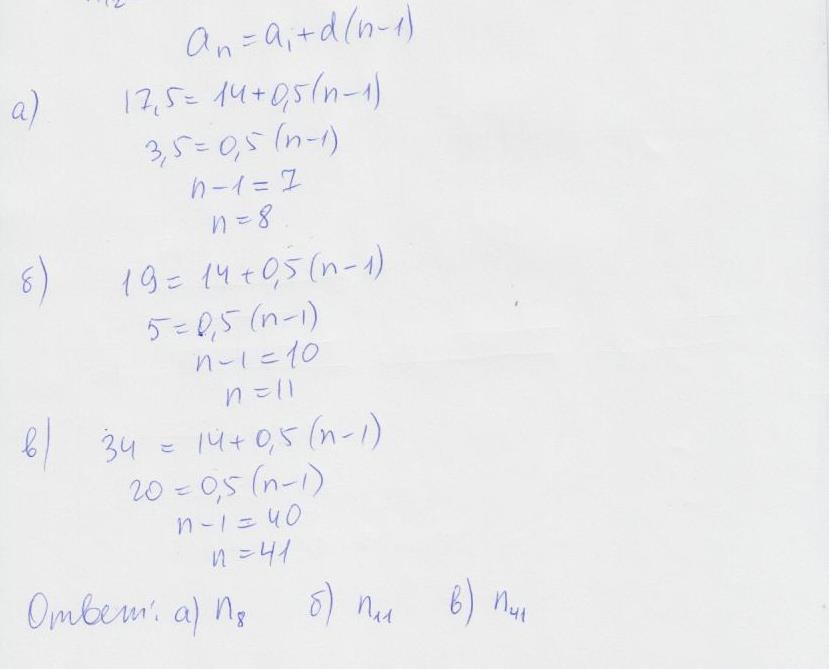 aₙ = a₁ + d(n-1)
а) 17,5 = 14 + 0,5(n-1)
3,5 = 0,5(n-1)
n-1 = 7
n = 8
б) 19 = 14 + 0,5(n-1)
5 = 0,5(n-1)
n-1 = 10
n = 11
в) 34 = 14 + 0,5(n-1)
20 = 0,5(n-1)
n-1 = 40
n = 41
Ответ: а) n₈ б) n₁₁ в) n₄₁